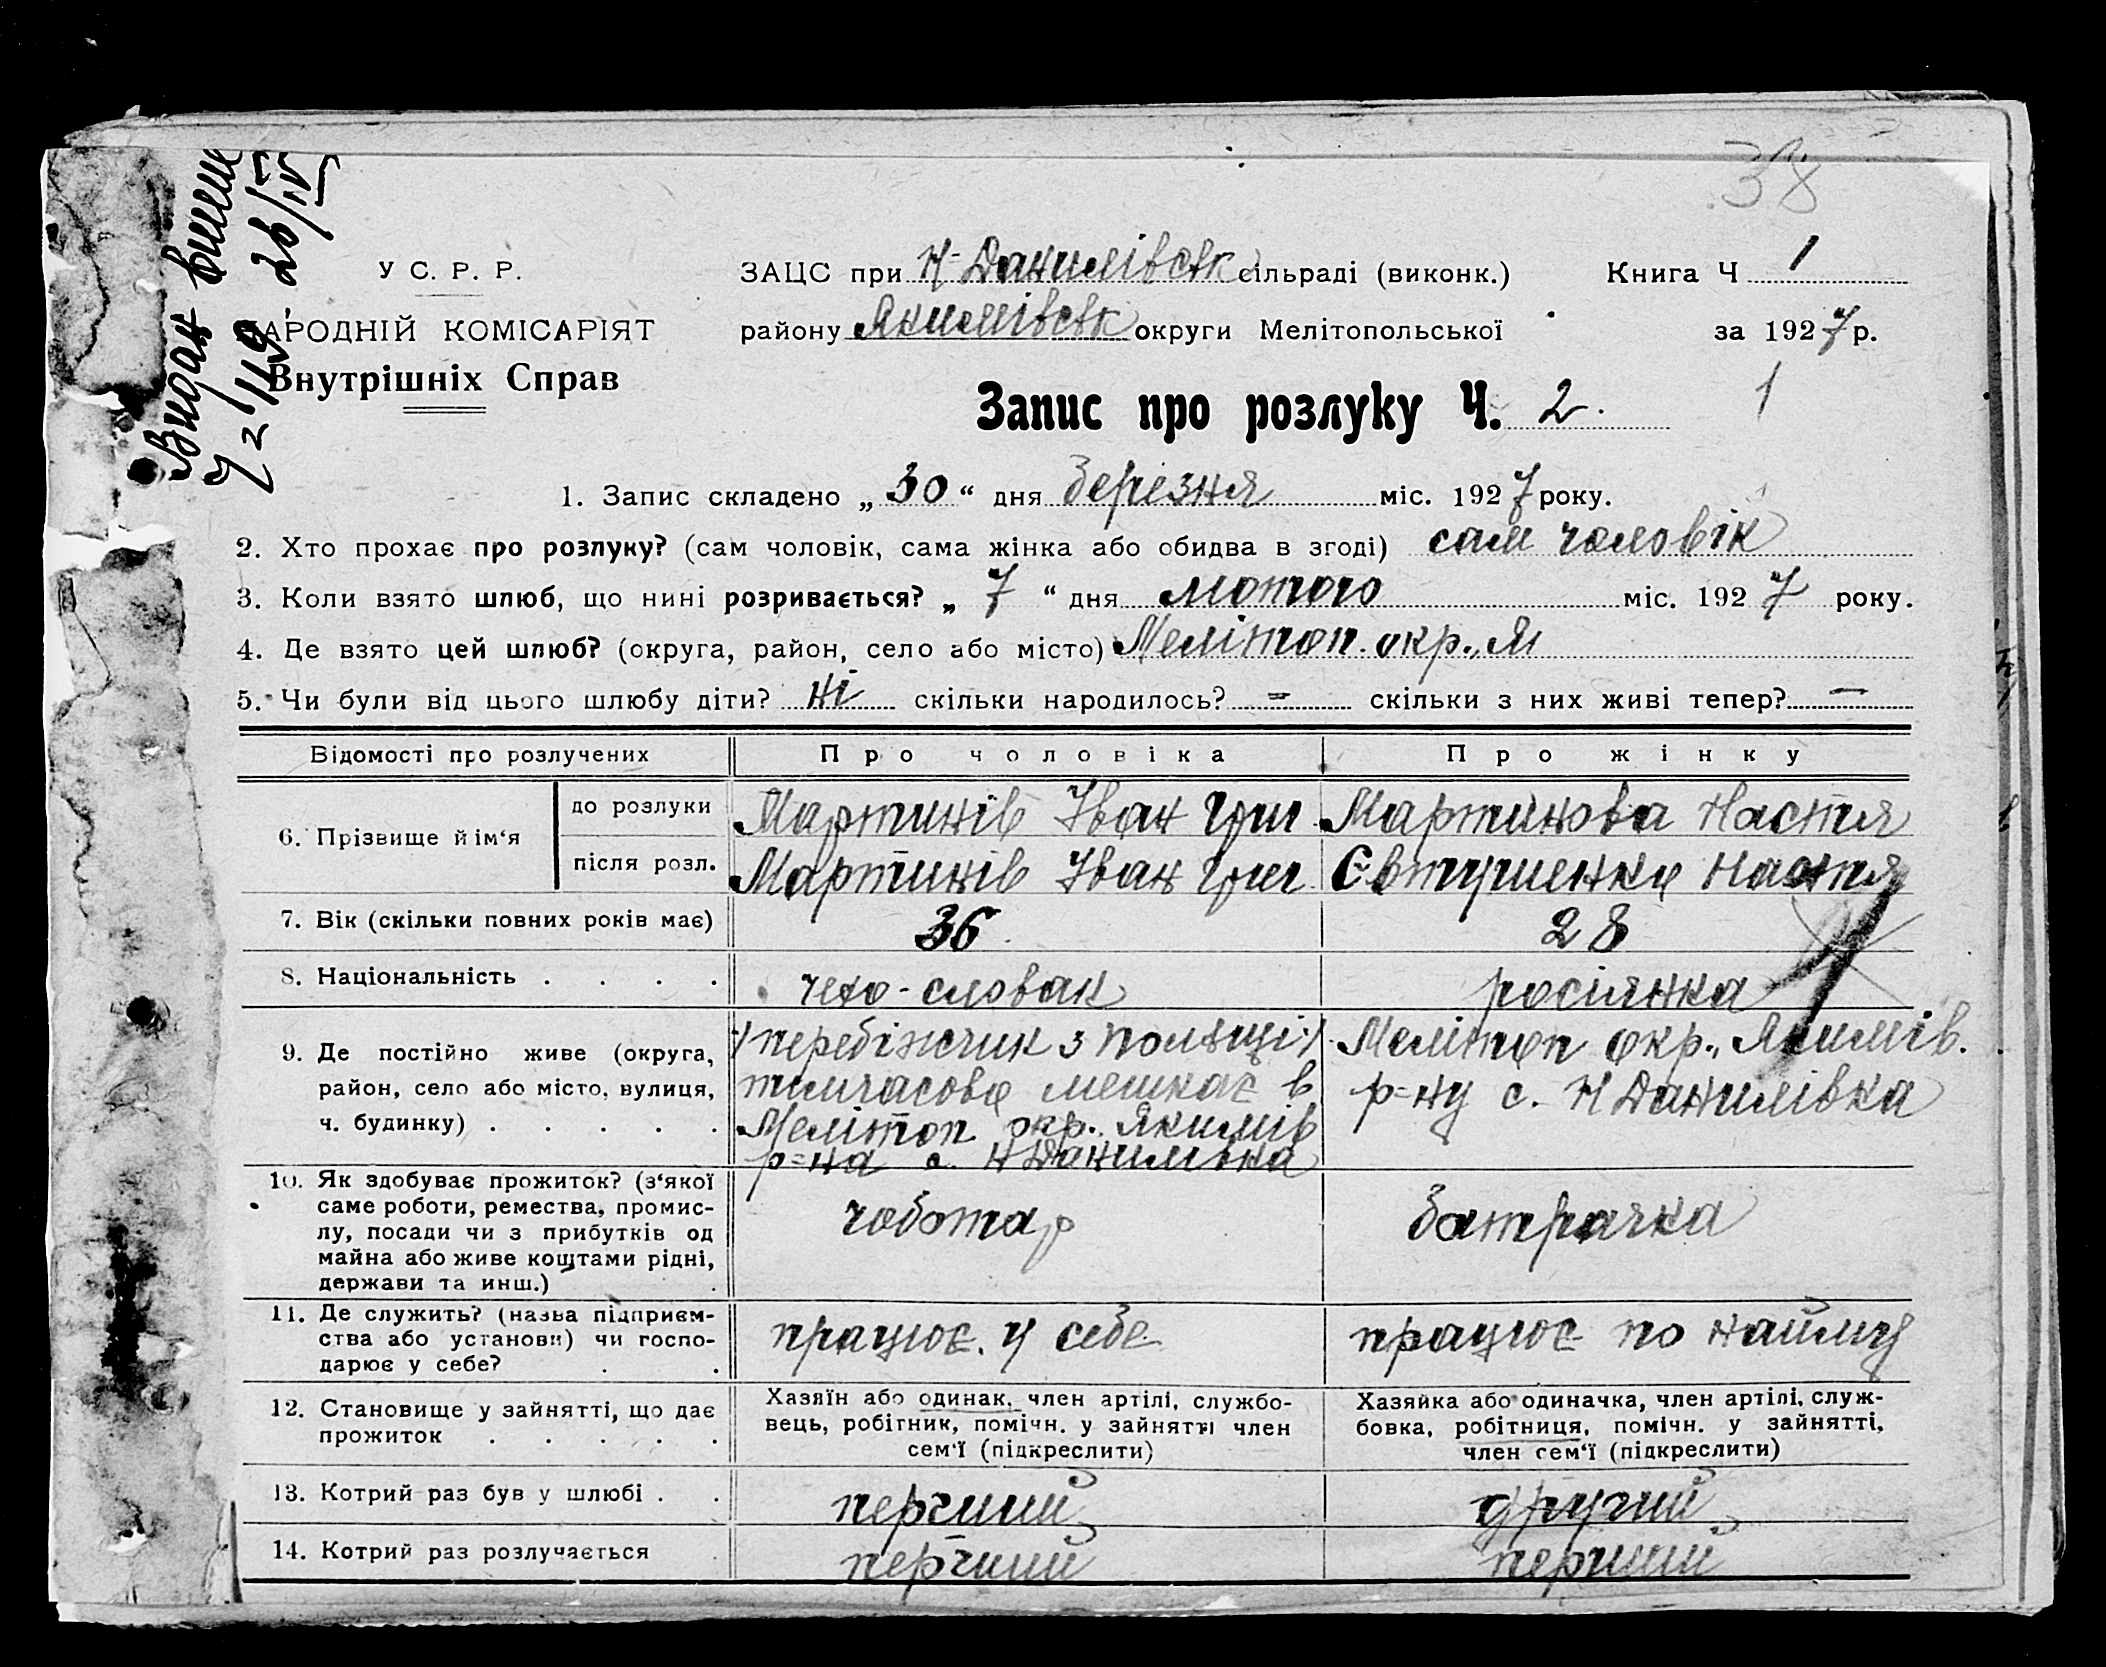 38
Видан виписк
Ч= 119, 28/IV
У С. Р. Р.
НАРОДНІЙ КОМІСАРІЯТ
Внутрішніх Справ
ЗАЦС при Н-Данилівськ сільраді (виконк.) Книга Ч 1
району Якимівськ округи Мелітопольської за 1927 р.
Запис про розлуку Ч. 2.
1
1. Запис складено „30“ дня березня міс. 1927 року.
2. Хто прохає про розлуку? (сам чоловік, сама жінка або обидва в згоді) сам чоловік
3. Коли взято шлюб, що нині розривається? „7“ дня лютого міс. 1927 року.
4. Де взято цей шлюб? (округа, район, село або місто) Мелітоп. окр., Я
5. Чи були від цього шлюбу діти? ні скільки народилось? = скільки з них живі тепер? —
Відомості про розлучених Про чоловіка Про жінку
6. Прізвище й ім‘я до розлуки Мартинів Іван Григ Мартинова Настя
після розл. Мартинів Іван Григ Євтушенко Настя
7. Вік (скільки повних років має) 36 28
8. Національність . . . . чехо-словак росіянка
9. Де постійно живе (округа, район, село або місто, вулиця, ч. будинку) . . . . .
/перебіжчик з польщі/
тимчасово мешкає в
Мелітоп окр. Якимів
р=на с. Н Данилівка
Мелітоп окр., Якимів.
р=ну с. Н Данилівка
10. Як здобуває прожиток? (з‘якої
саме роботи, ремества, промис-
лу, посади чи з прибутків од
майна або живе коштами рідні,
держави та инш.) .
чоботар батрачка
11. Де служить? (назва підприєм-
ства або установи) чи госпо-
дарює у себе? . .
працює у себе працює по найму
12. Становище у зайнятті, що дає
прожиток . . . . .
Хазяїн або одинак, член артілі, службо-
вець, робітник, помічн. у зайнятті член
сем‘ї (підкреслити)
Хазяйка або одиначка, член артілі, служ-
бовка, робітниця, помічн. у зайнятті,
член сем‘ї (підкреслити)
13. Котрий раз був у шлюбі . . перчший другий
14. Котрий раз розлучається перчший перший